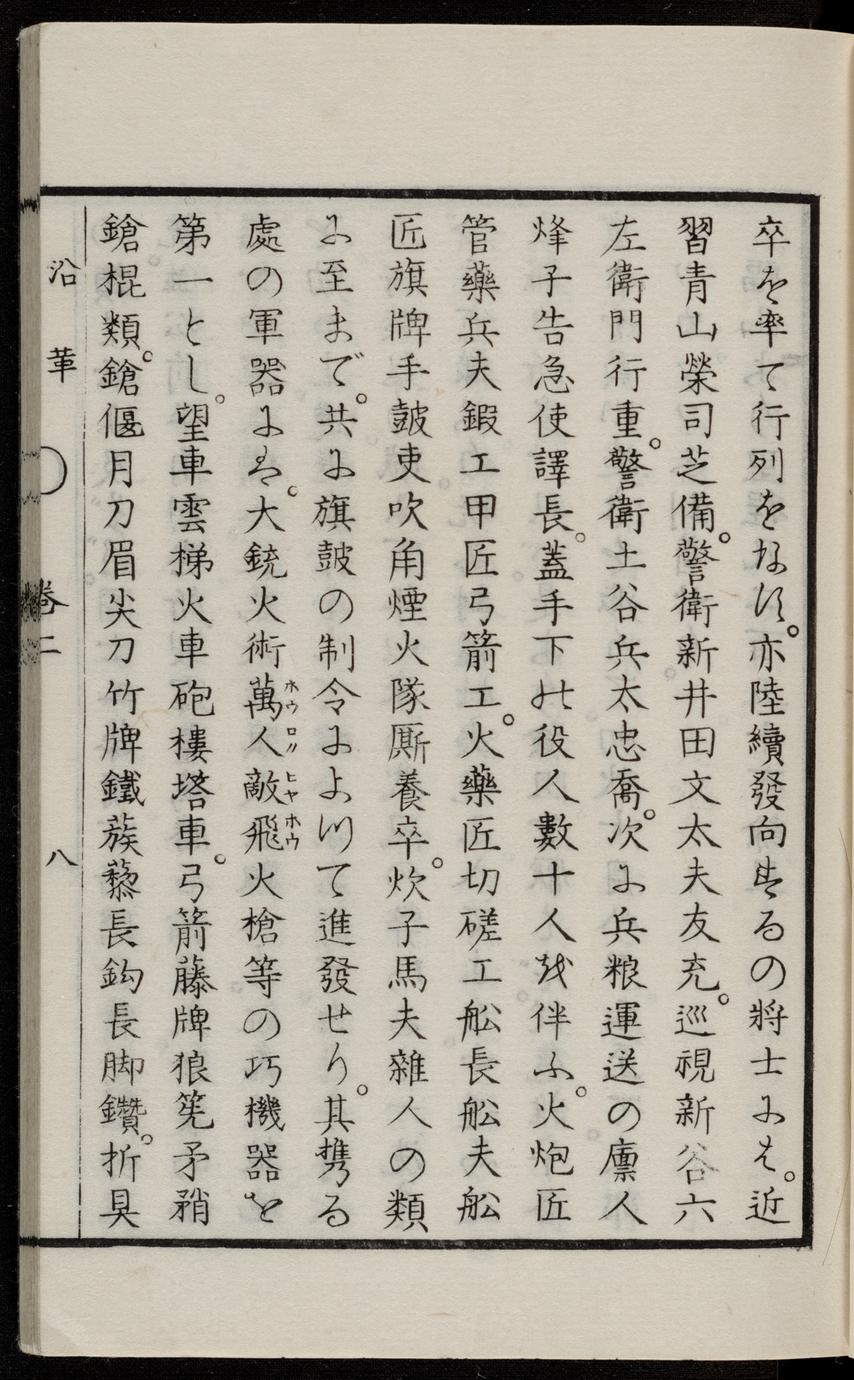 卒を率て行列をなす。亦陸續發向するの將士には。近
習青山榮司芝備。警衛新井田文太夫友充。巡視新谷六
左衛門行重。警衛土谷兵太忠喬。次に兵粮運送の廩人
烽子告急使譯長。蓋手下の役人數十人を伴ふ。火炮匠
管藥兵夫鍜工甲匠弓箭工。火藥匠切磋工舩長舩夫舩
匠旗牌手鼓吏吹角煙火隊厮養卒。炊子馬夫雜人の類
に至まで。共に旗鼓の制令によつて進發せり。其携る
處の軍器には。大銃火術萬人敵飛火槍等の巧機器を
ホウロク ヒヤホウ
第一とし。望車雲梯火車砲樓塔車。弓箭藤牌狼筅矛矟
鎗棍類。鎗偃月刀眉尖刀竹牌鐵蒺藜長鈎長脚鑽。折具
沿革 卷二 八